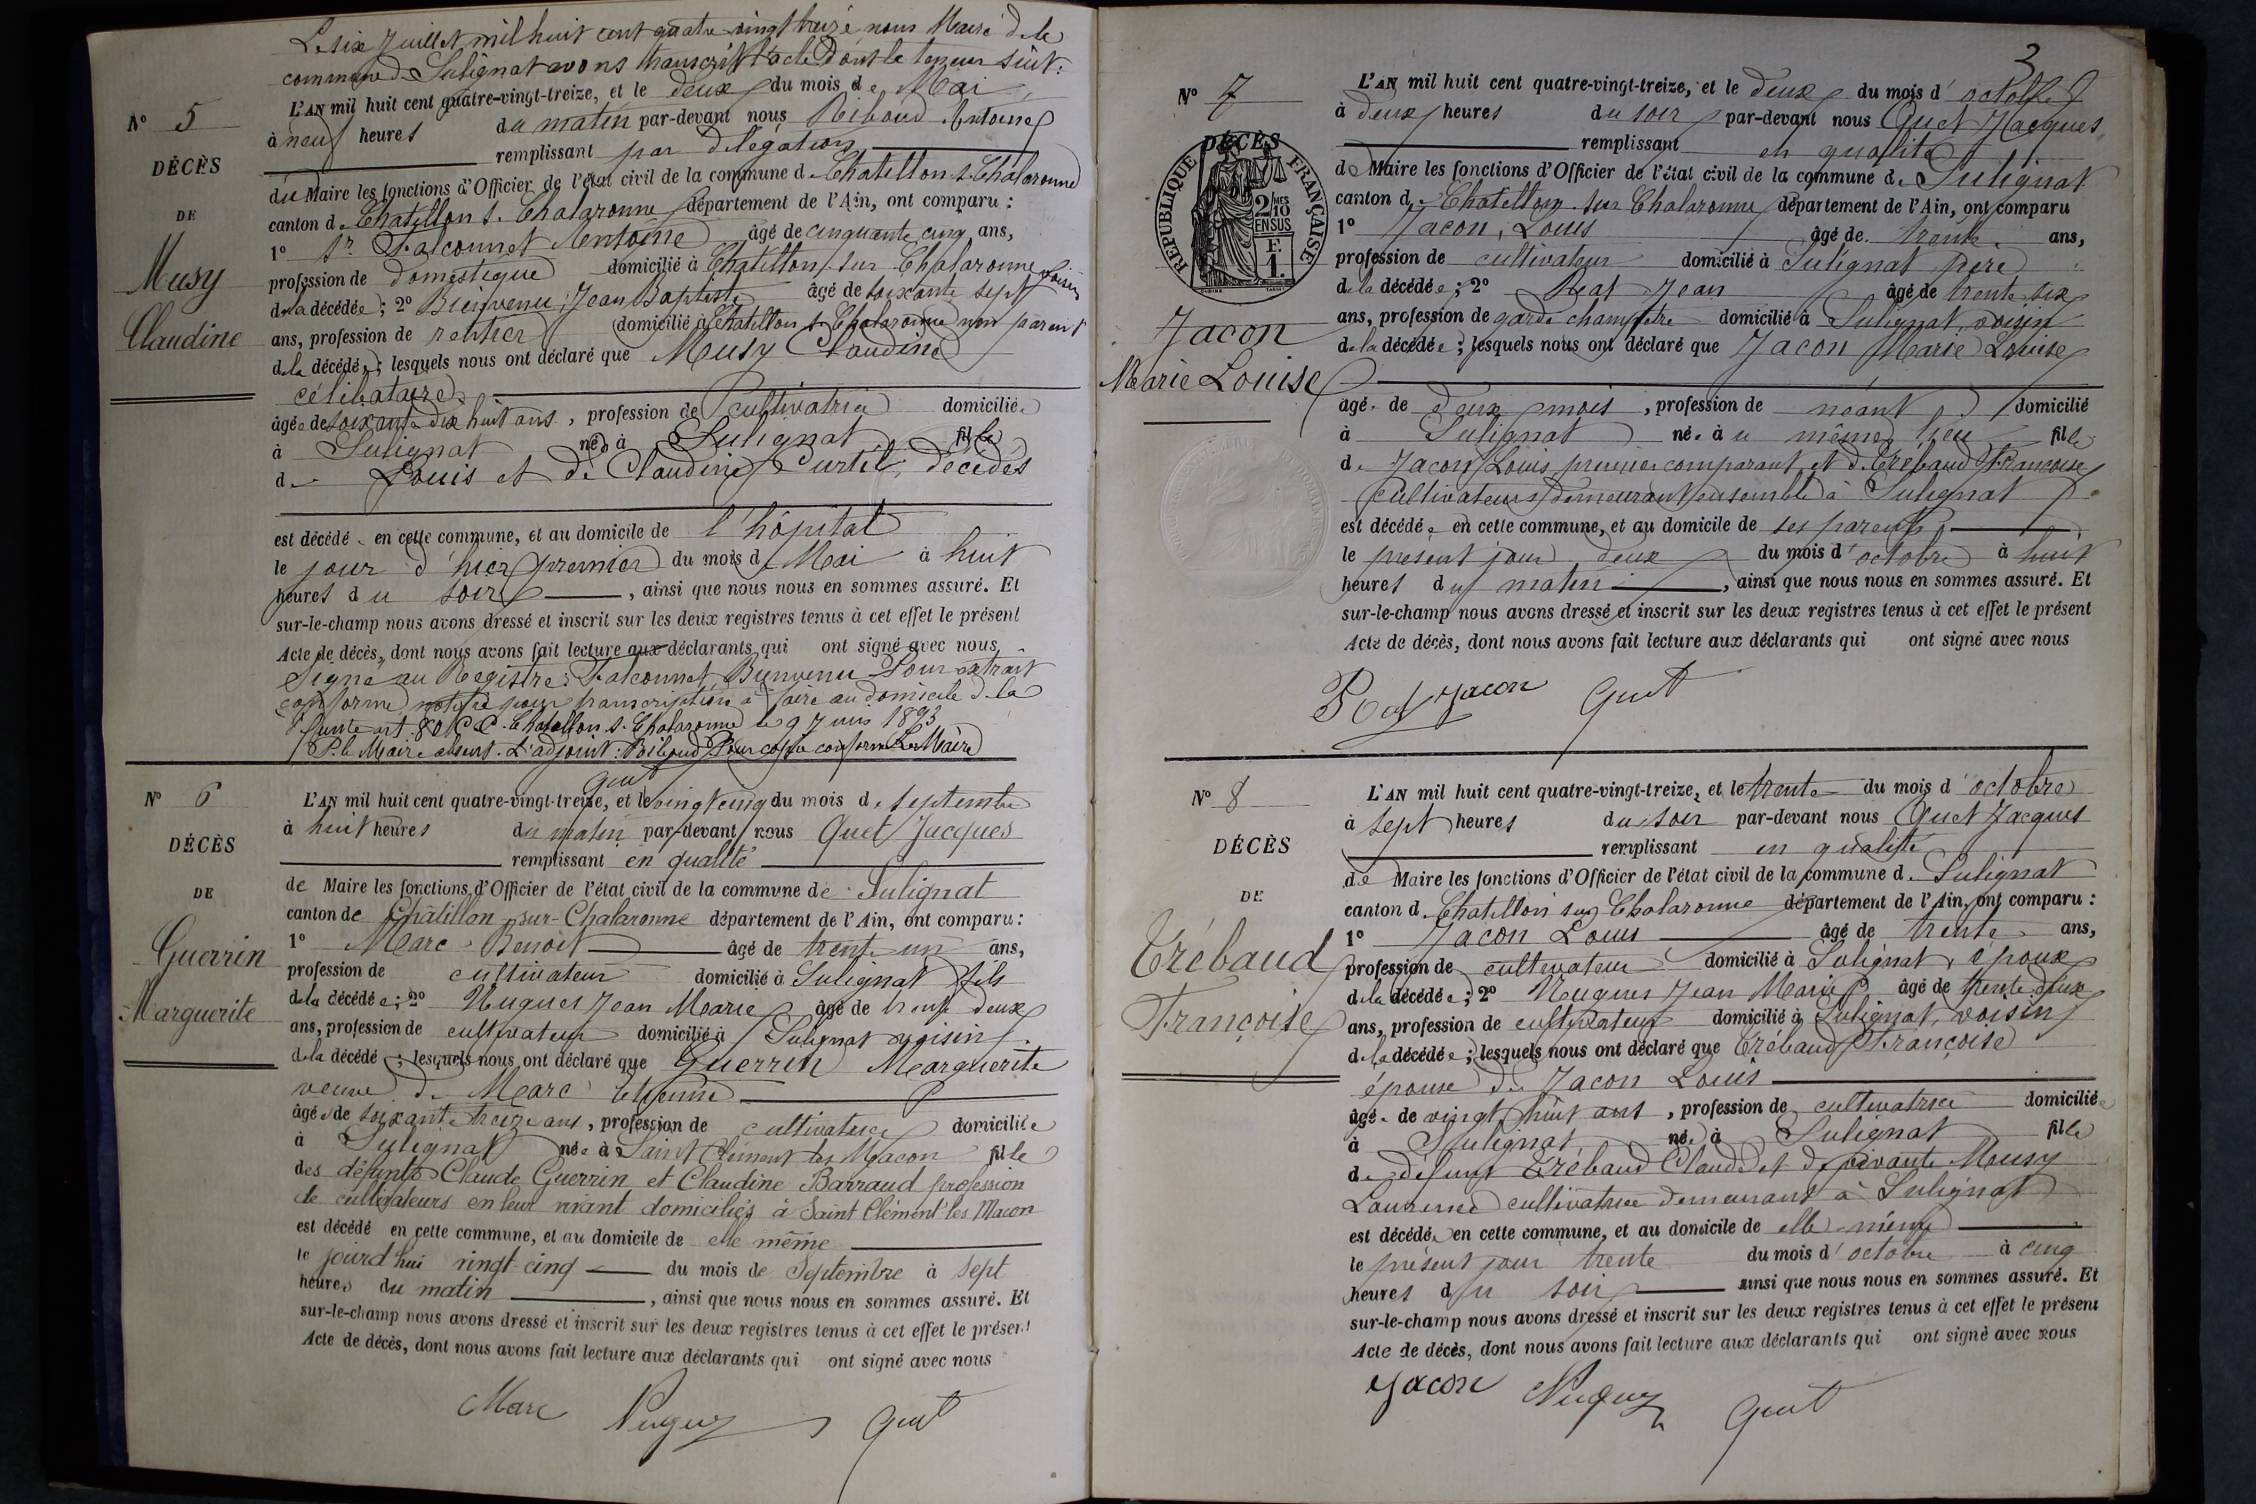 Le six Juillet mil huit cent quatre vingt treize nous Maire de la
commune de Sulignat avons transcrit l'acte dont la teneur suit:
N° 5
DÉCÈS
DE
Musy
Claudine
L'AN mil huit cent quatre-vingt-treize, et le deux du mois de Mai
à neuf heures du matin par-devant nous Riboud Antoine
remplissant par délégation
du Maire les fonctions d'Officier de l'état civil de la commune d. Chatillon s. Chalaronne
canton d. Chatillon s. Chalaronne département de l'Ain, ont comparu :
1° Sr Falconnet Antoine âgé de cinquante cinq ans,
profession de domestique domicilié à Chatillon sur Chalaronne voisin
de la décédée ; 2° Bienvenu Jean Baptiste âgé de soixante sept
ans, profession de rentier domicilié à Chatillon s. Chalaronne non parent
de la décédée ; lesquels nous ont déclaré que Musy Claudine
célibataire
âgée de soixante dix huit ans, profession de cultivatrice domiciliée
à Sulignat née à Sulignat fille
de Louis et de Claudine Curtil, décédés
est décédé en cette commune, et au domicile de l'hôpital
le jour d'hier premier du mois de Mai à huit
heures du soir, ainsi que nous nous en sommes assuré. Et
sur-le-champ nous avons dressé et inscrit sur les deux registres tenus à cet effet le présent
Acte de décès, dont nous avons fait lecture aux déclarants qui ont signé avec nous
Signé au Registre: Falconnet, Bienvenu Pour extrait
conforme notifié pour transcription à faire au domicile de la
défunte art. 80 C.C. Chatillon s. Chalaronne le 9 Juin 1893
P. le Maire absent. L'adjoint: Riboud Pour copie conforme Le Maire
Quet
N° 6
DÉCÈS
DE
Guerrin
Marguerite
L'AN mil huit cent quatre-vingt-treize, et le vingt cinq du mois de septembre
à huit heures du matin par-devant nous Quet Jacques
remplissant en qualité
de Maire les fonctions d'Officier de l'état civil de la commune de Sulignat
canton de Châtillon-sur-Chalaronne département de l'Ain, ont comparu :
1° Marc Benoit âgé de trente un ans,
profession de cultivateur domicilié à Sulignat fils
de la décédée ; 2° Nugues Jean Marie âgé de trente deux
ans, profession de cultivateur domicilié à Sulignat voisin
de la décédé ; lesquels nous ont déclaré que Guerrin Marguerite
veuve de Marc Etienne
âgée de soixante treize ans, profession de cultivatrice domiciliée
à Sulignat née à Saint Clément les Macon fille
des défunts Claude Guerrin et Claudine Barraud profession
de cultivateurs en leur vivant domiciliés à Saint Clément les Macon
est décédé en cette commune, et au domicile de elle même
le jourd'hui vingt cinq du mois de Septembre à sept
heures du matin, ainsi que nous nous en sommes assuré. Et
sur-le-champ nous avons dressé et inscrit sur les deux registres tenus à cet effet le présent
Acte de décès, dont nous avons fait lecture aux déclarants qui ont signé avec nous
Marc Nugues Quet
3
N° 7
DÉCÈS
RÉPUBLIQUE FRANÇAISE
2 MES
10
EN SUS
F.
1.
Jacon
Marie Louise
L'AN mil huit cent quatre-vingt-treize, et le deux du mois d'octobre
à deux heures du soir par-devant nous Quet Jacques
remplissant en qualité
de Maire les fonctions d'Officier de l'état civil de la commune d. Sulignat
canton d. Chatillon sur Chalaronne département de l'Ain, ont comparu
1° Jacon, Louis âgé de trente ans,
profession de cultivateur domicilié à Sulignat père
de la décédée ; 2° Réat Jean âgé de trente six
ans, profession de garde champêtre domicilié à Sulignat, voisin
de la décédée ; lesquels nous ont déclaré que Jacon Marie Louise
âgé. de deux mois, profession de néant domicilié
à Sulignat né. à u même lieu fille
de Jacon Louis premier comparant et de Trébaud Françoise
cultivateurs demeurant ensemble à Sulignat
est décédé. en cette commune, et au domicile de ses parents
le présent jour deux du mois d'octobre à huit
heures du matin, ainsi que nous nous en sommes assuré. Et
sur-le-champ nous avons dressé et inscrit sur les deux registres tenus à cet effet le présent
Acte de décès, dont nous avons fait lecture aux déclarants qui ont signé avec nous
Jacon Quet
N° 8
DÉCÈS
DE
Trébaud
Françoise
L'AN mil huit cent quatre-vingt-treize, et le trente du mois d'octobre
à sept heures du soir par-devant nous Quet Jacques
remplissant en qualité
de Maire les fonctions d'Officier de l'état civil de la commune d. Sulignat
canton d. Chatillon sur Chalaronne département de l'Ain, ont comparu :
1° Jacon Louis âgé de trente ans,
profession de cultivateur domicilié à Sulignat, époux
de la décédée ; 2° Nugues Jean Marie âgé de trente deux
ans, profession de cultivateur domicilié à Sulignat, voisin
de la décédée ; lesquels nous ont déclaré que Trébaud Françoise
épouse de Jacon Louis
âgé. de vingt huit ans, profession de cultivatrice domiciliée
à Sulignat née à Sulignat fille
de défunt Trébaud Claude et de vivante Musy
Laurence cultivatrice demeurant à Sulignat
est décédée en cette commune, et au domicile de elle-même
le présent jour trente du mois d'octobre à cinq
heures du soir ainsi que nous nous en sommes assuré. Et
sur-le-champ nous avons dressé et inscrit sur les deux registres tenus à cet effet le présent
Acte de décès, dont nous avons fait lecture aux déclarants qui ont signé avec nous
Jacon Nugues Quet